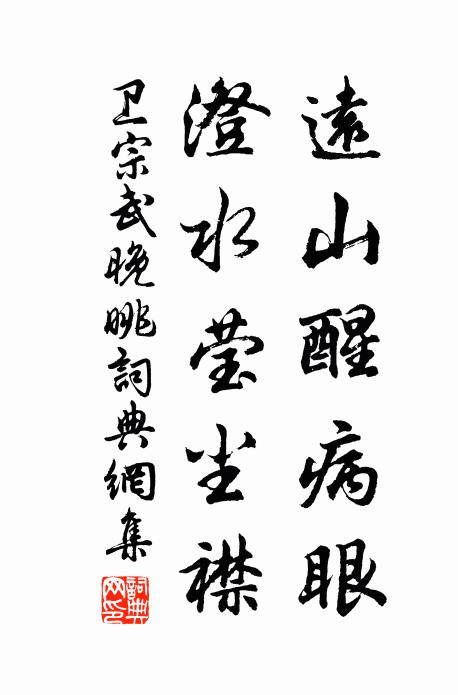 遠山醒病眼
澄水莹尘襟
卫宗武晚眺詞典網集
詞典網印